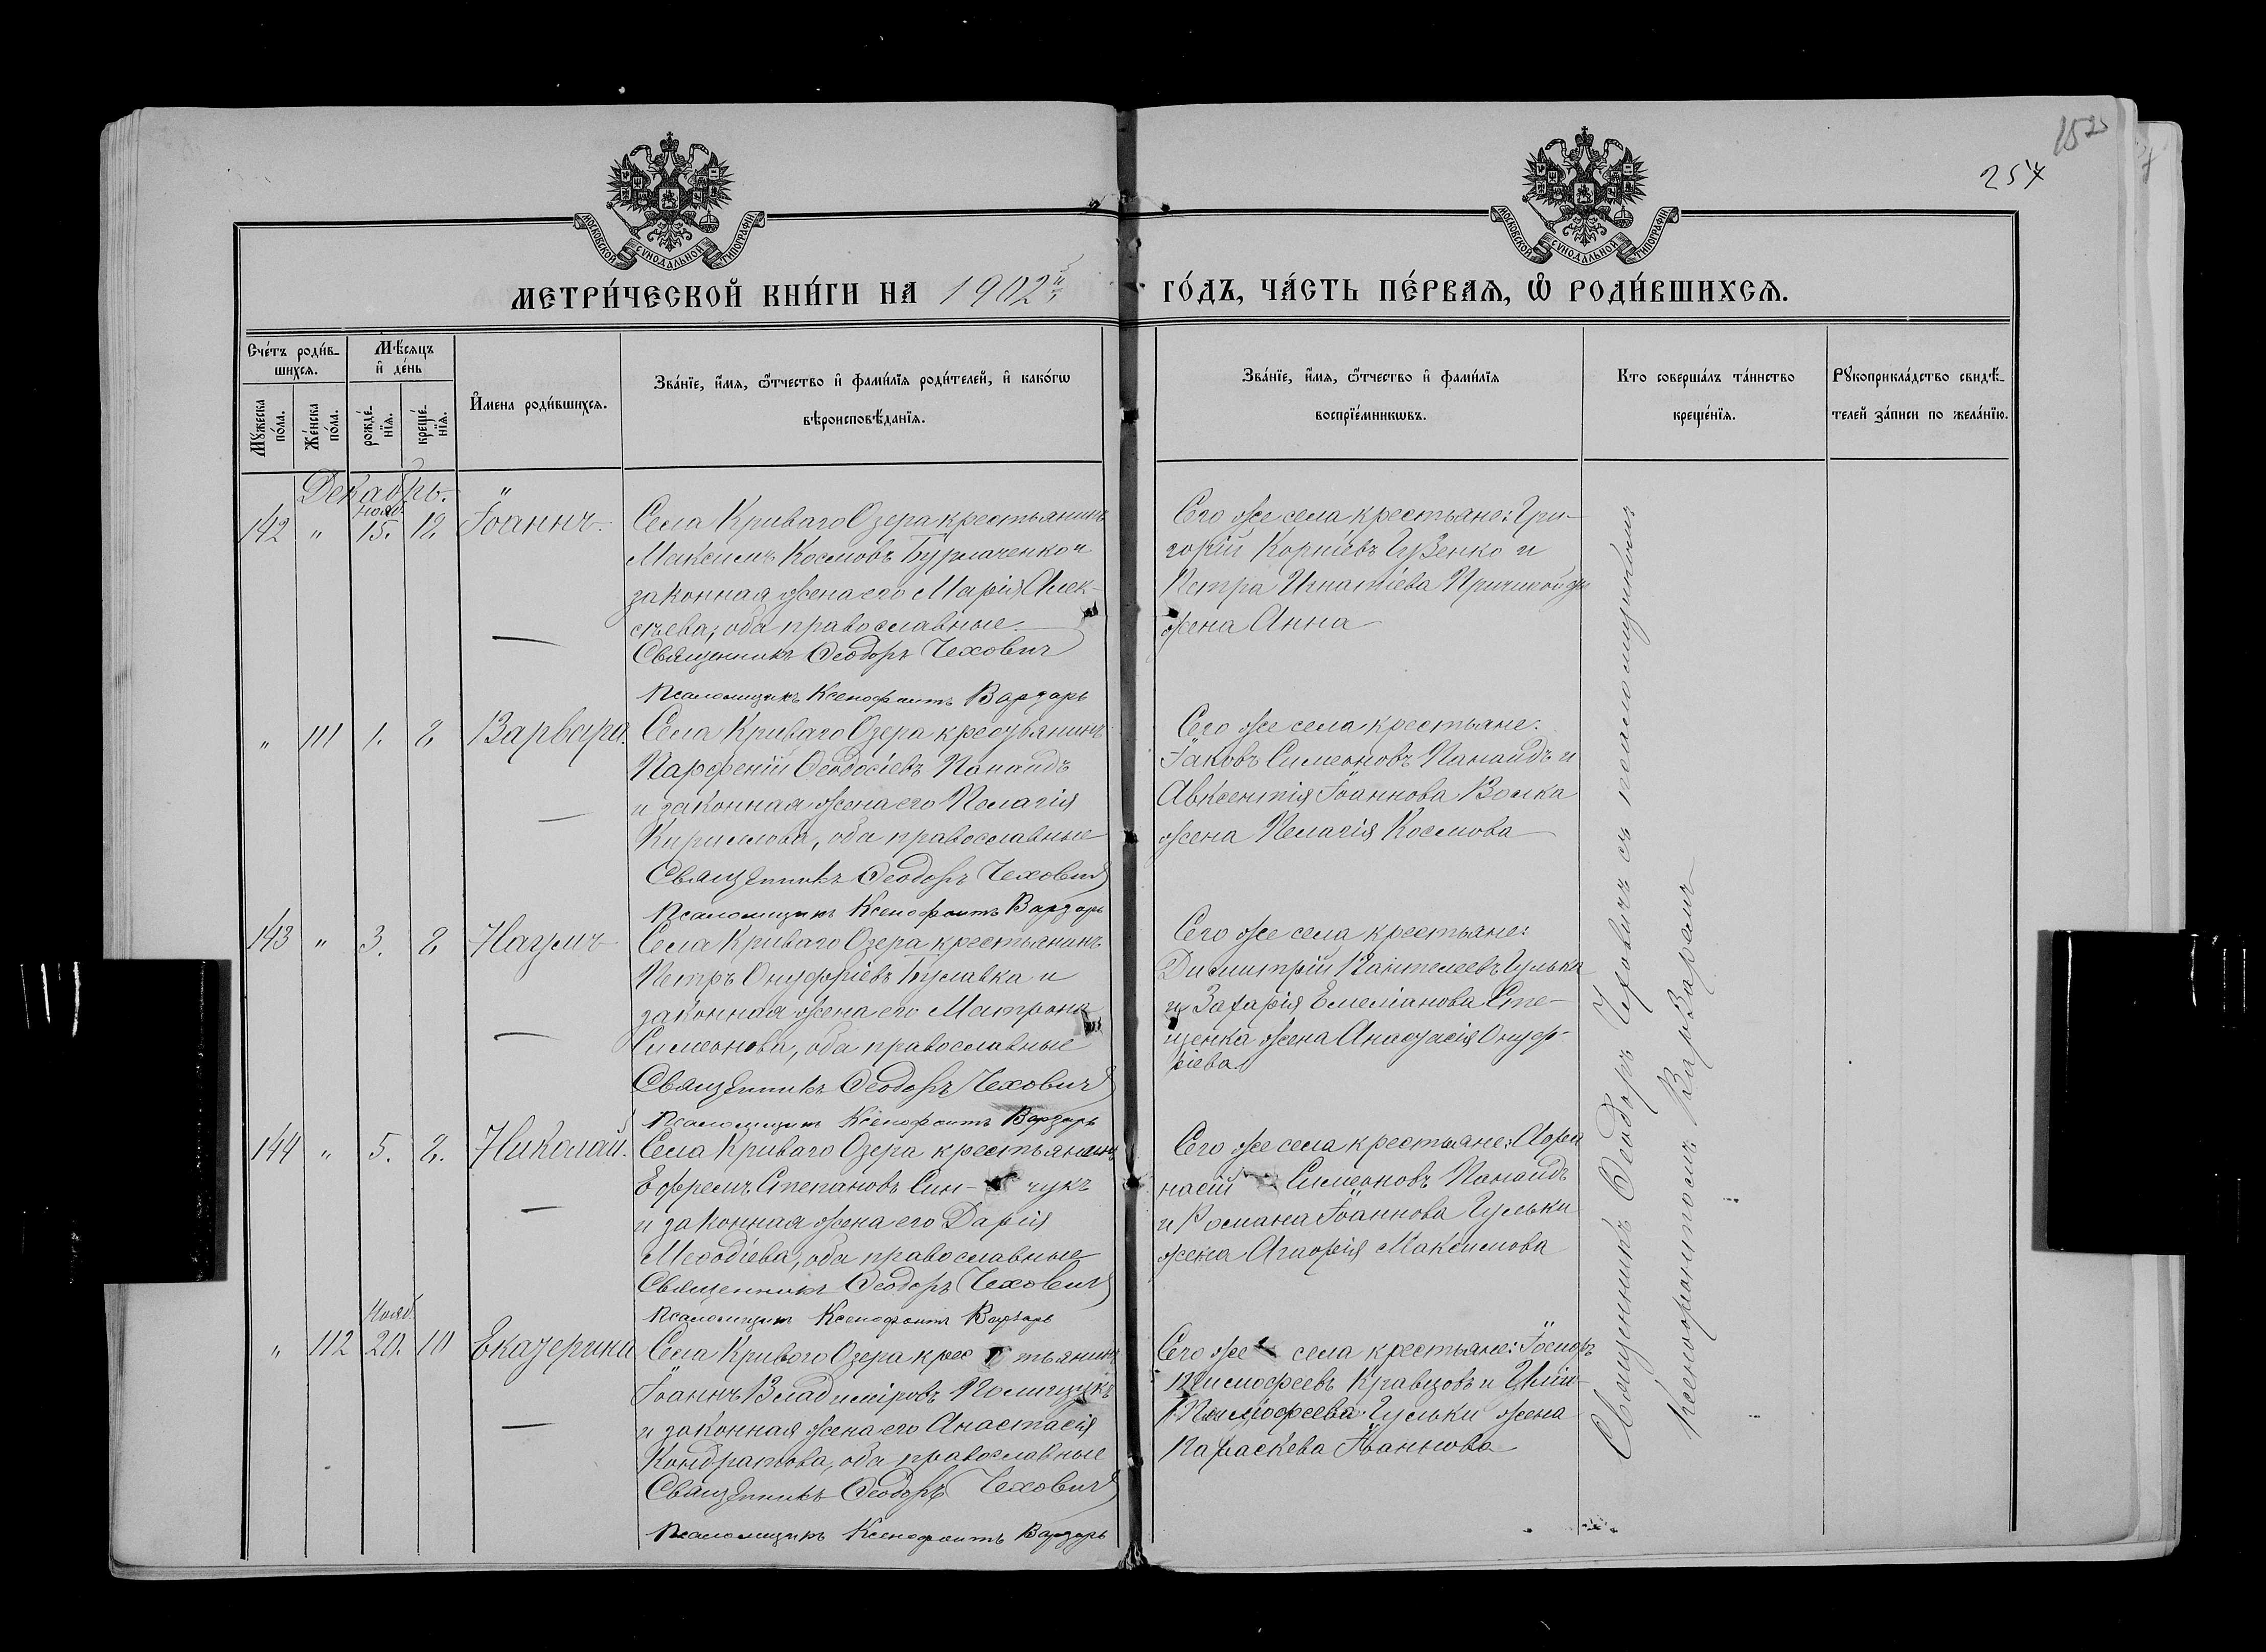 1525
257
МОСКОВСКОЙ СѴНОДАЛЬНОЙ ТИПОГРАФІИ
МОСКОВСКОЙ СѴНОДАЛЬНОЙ ТИПОГРАФІИ
МЕТРИ́ЧЕСКОЙ КНИ́ГИ НА 1902й
ГО́ДЪ, ЧА́СТЬ ПЕ́РВАѦ, Ѽ РОДИ́ВШИХСѦ.
Сче́тъ роди́в-
шихсѧ.
Мѣ́сѧцъ
и҆ де́нь
Мꙋ́жеска
по́ла.
Же́нска
по́ла.
рожде́-
нїѧ.
креще́-
нїѧ.
И҆мена роди́вшихсѧ.
Зва́нїе, и҆́мѧ, ѻ҆́тчество и҆ фами́лїѧ роди́телей, и҆ како́гѡ
вѣроисповѣ́данїѧ.
Зва́нїе, и҆́мѧ, ѻ҆́тчество и҆ фами́лїѧ
воспрїе́мникѡвъ.
Кто соверша́лъ та́инство
креще́нїѧ.
Рꙋкоприкла́дство свидѣ́-
телей за́писи по жела́нїю.
Декабрь.
142 " нояб. 15. 12. Іоаннъ.
Села Криваго Озера крестьянинъ
Максимъ Космовъ Бурлаченко и
законная жена его Марія Алек-
сѣева, оба православные.
Священникъ Ѳеодоръ Чеховичъ
Псаломщикъ Ксенофонтъ Варзарь
Сего же села крестьяне: Гри-
горій Корніевъ Гузенко и
Петра Игнатіева
жена Анна
" 111 1. 2 Варвара.
Села Криваго Озера крестьянинъ
Парфеній Ѳеодосіевъ Панаидъ
и законная жена его Пелагія
Кириллова, оба православные
Священникъ Ѳеодоръ Чеховичъ
Псаломщикъ Ксенофонтъ Варзарь
Сего же села крестьяне:
Іаковъ Симеоновъ Панаидъ и
Авксентія Іоаннова Волка
жена Пелагія Космова
143 " 3. 8 Наумъ
Села Криваго Озера крестьянинъ
Петръ Онуфріевъ Буславка и
законная жена его Матрона
Симеонова, оба православные
Священникъ Ѳеодоръ Чеховичъ
Псаломщикъ Ксенофонтъ Варзарь
Сего же села крестьяне:
Димитрій Пантелеевъ Гулька
и Захарія Емеліанова Сте-
ценка жена Анастасія Онуф-
ріева
144 " 5. 8. Николай.
Села Криваго Озера крестьянинъ
Ефремъ Степановъ Син- чукъ
и законная жена его Дарія
Меѳодіева, оба православные
Священникъ Ѳеодоръ Чеховичъ
Псаломщикъ Ксенофонтъ Варзарь
Сего же села крестьяне: Аѳа
насій Симеоновъ Панаидъ
и Романа Іоаннова Гульки
жена Агафія Максимова
" 112 Нояб. 20. 10 Екатерина
Села Криваго Озера крес тьянинъ
Іоаннъ Владиміровъ Полищукъ
и законная жена его Анастасія
Кондратова, оба православные
Священникъ Ѳеодоръ Чеховичъ
Псаломщикъ Ксенофонтъ Варзарь
Сего же села крестьяне: Іосифъ
Тимоѳеевъ Кравцовъ и
Тимоѳеева Гульки жена
Параскева Іоаннова
Священникъ Ѳеодоръ Чеховичъ съ псаломщикомъ
Ксенофонтомъ Варзаремъ